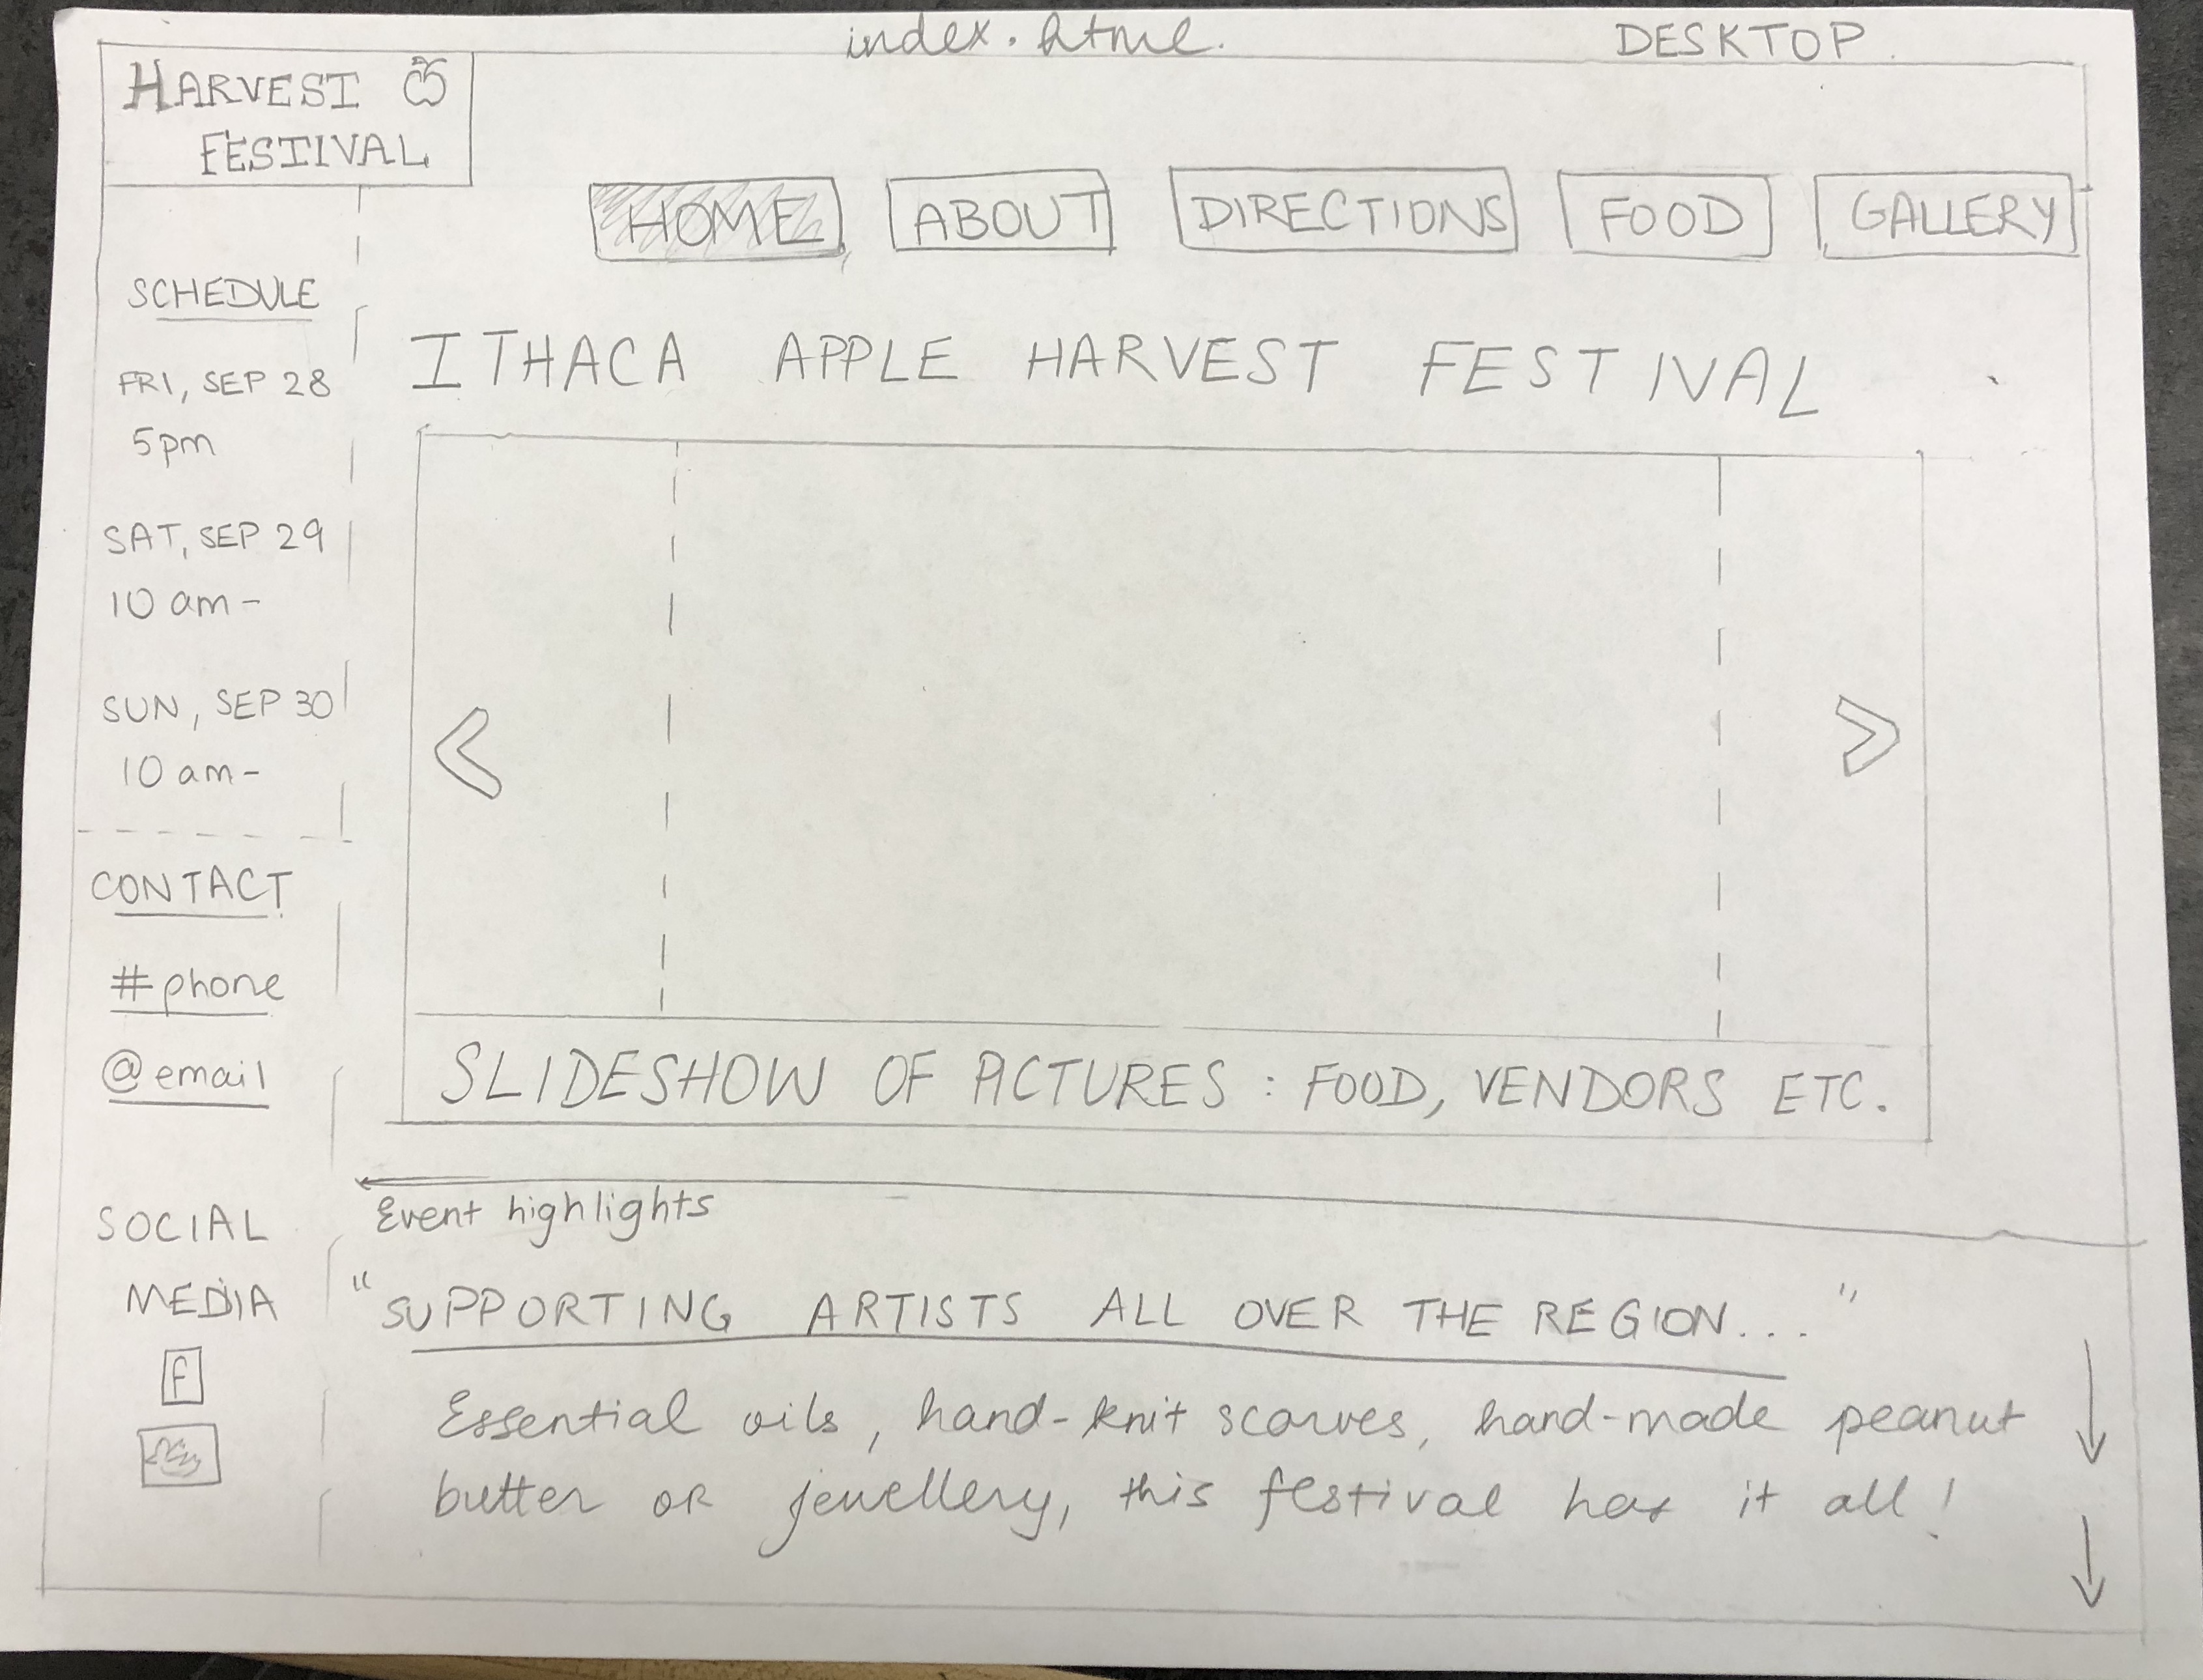 index.html.
DESKTOP.
HARVEST
FESTIVAL
HOME
ABOUT
DIRECTIONS
FOOD
GALLERY
SCHEDULE
FRI, SEP 28
5pm
SAT, SEP 29
10 am-
SUN, SEP 30
10 am-
CONTACT
#phone
@email
SOCIAL
MEDIA
f
ITHACA APPLE HARVEST FESTIVAL
<
>
SLIDESHOW OF PICTURES : FOOD, VENDORS ETC.
Event highlights
"SUPPORTING ARTISTS ALL OVER THE REGION..."
Essential oils, hand-knit scarves, hand-made peanut
butter or jewellery, this festival has it all!